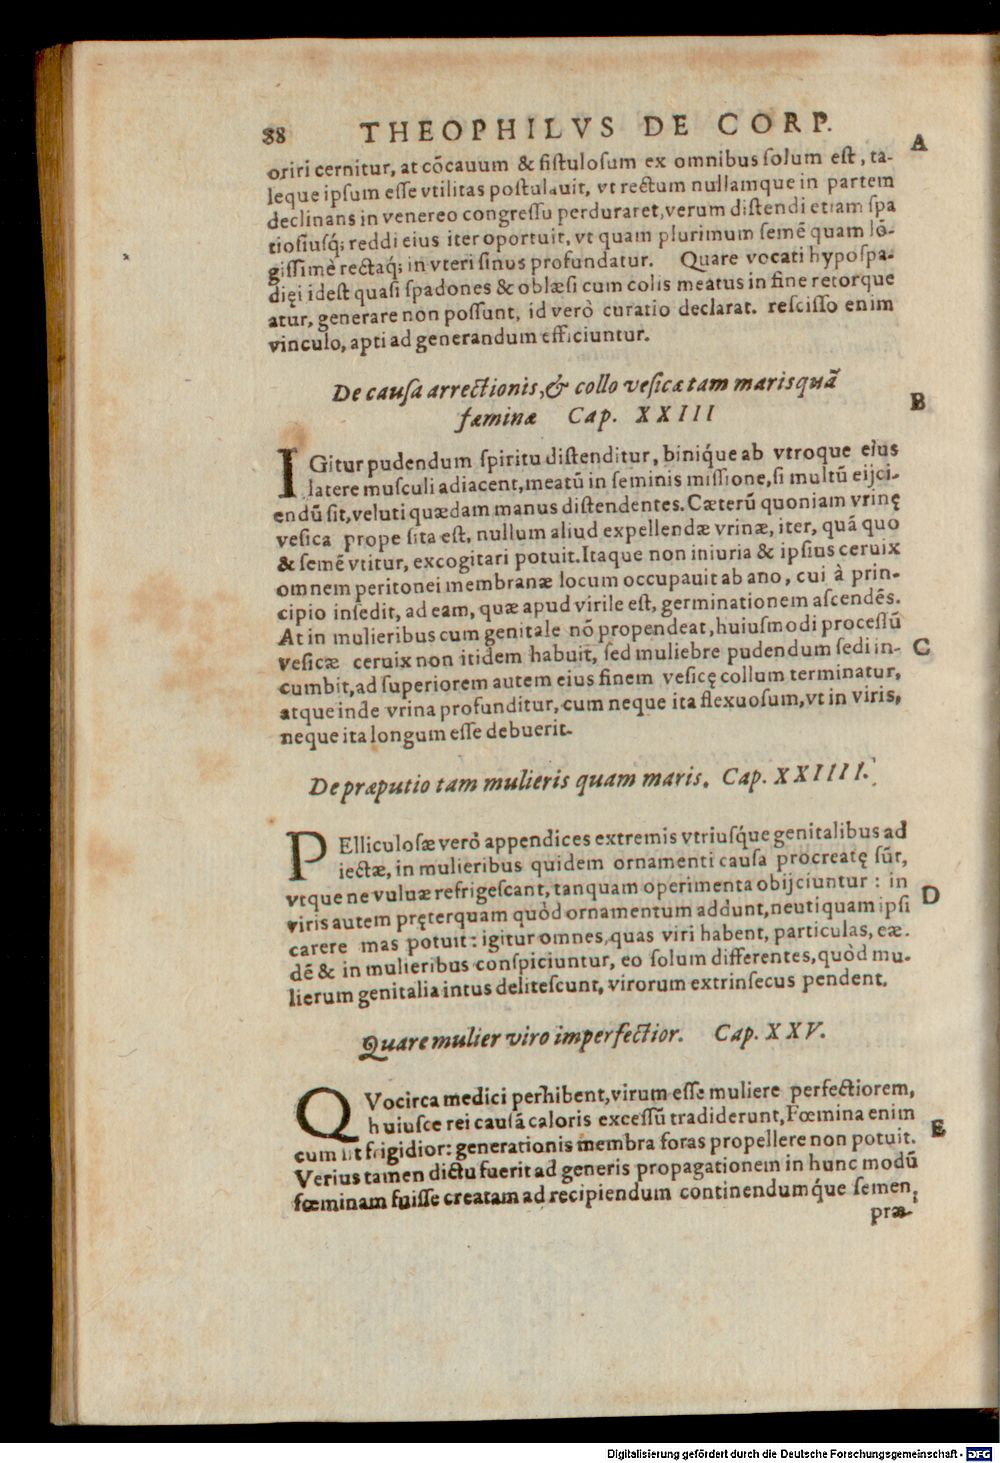 88 THEOPHILVS DE CORP.
A
oriri cernitur, at cōcauum & fistulosum ex omnibus solum est, ta-
leque ipsum esse vtilitas postulauit, vt rectum nullamque in partem
declinans in venereo congressu perduraret, verum distendi etiam spa
tiosiusq́; reddi eius iter oportuit, vt quam plurimum semē quam lō-
gissimè rectaq́; in vteri sinus profundatur. Quare vocati hypospa-
dięi idest quasi spadones & oblæsi cum colis meatus in fine retorque
atur, generare non possunt, id verò curatio declarat. rescisso enim
vinculo, apti ad generandum efficiuntur.
De causa arrectionis, & collo vesicæ tam maris quā
fæminæ Cap. XXIII
B
IGitur pudendum spiritu distenditur, biniq́ue ab vtroque eius
latere musculi adiacent, meatū in seminis missione, si multū eijci-
endū sit, veluti quædam manus distendentes. Cæterū quoniam vrinę
vesica prope sita est, nullum aliud expellendæ vrinæ, iter, quā quo
& semē vtitur, excogitari potuit. Itaque non iniuria & ipsius ceruix
omnem peritonei membranæ locum occupauit ab ano, cui à prin-
cipio insedit, ad eam, quæ apud virile est, germinationem ascendēs.
At in mulieribus cum genitale nō propendeat, huiusmodi processū
vesicæ ceruix non itidem habuit, sed muliebre pudendum sedi in-
C
cumbit, ad superiorem autem eius finem vesicę collum terminatur,
atque inde vrina profunditur, cum neque ita flexuosum, vt in viris,
neque ita longum esse debuerit.
De præputio tam mulieris quam maris. Cap. XXIIII.
PElliculosæ verò appendices extremis vtriusq́ue genitalibus ad
iectæ, in mulieribus quidem ornamenti causa procreatę sūt,
vtque ne vuluæ refrigescant, tanquam operimenta obijciuntur: in
D
viris autem pręterquam quòd ornamentum addunt, neutiquam ipsi
carere mas potuit: igitur omnes, quas viri habent, particulas, eæ-
dē & in mulieribus conspiciuntur, eo solum differentes, quòd mu-
lierum genitalia intus delitescunt, virorum extrinsecus pendent.
Quare mulier viro imperfectior. Cap. XXV.
QVocirca medici perhibent, virum esse muliere perfectiorem,
huiusce rei causā caloris excessū tradiderunt, Fœmina enim
E
cum sit frigidior: generationis membra foras propellere non potuit.
Verius tamen dictu fuerit ad generis propagationem in hunc modū
fœminam fuisse creatam ad recipiendum continendumq́ue semen,
præ-
Digitalisierung gefördert durch die Deutsche Forschungsgemeinschaft - DFG